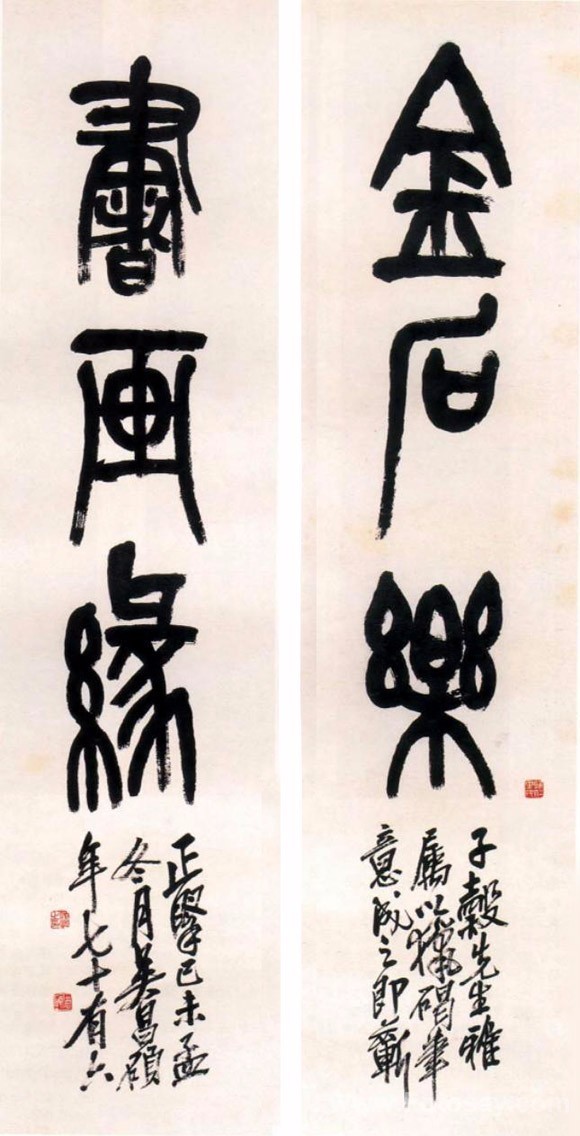 金石樂
書画緣
子穀先生雅
屬以獵碣筆
意成之即蘄
正擘己未孟
冬月吴昌碩
年七十有六